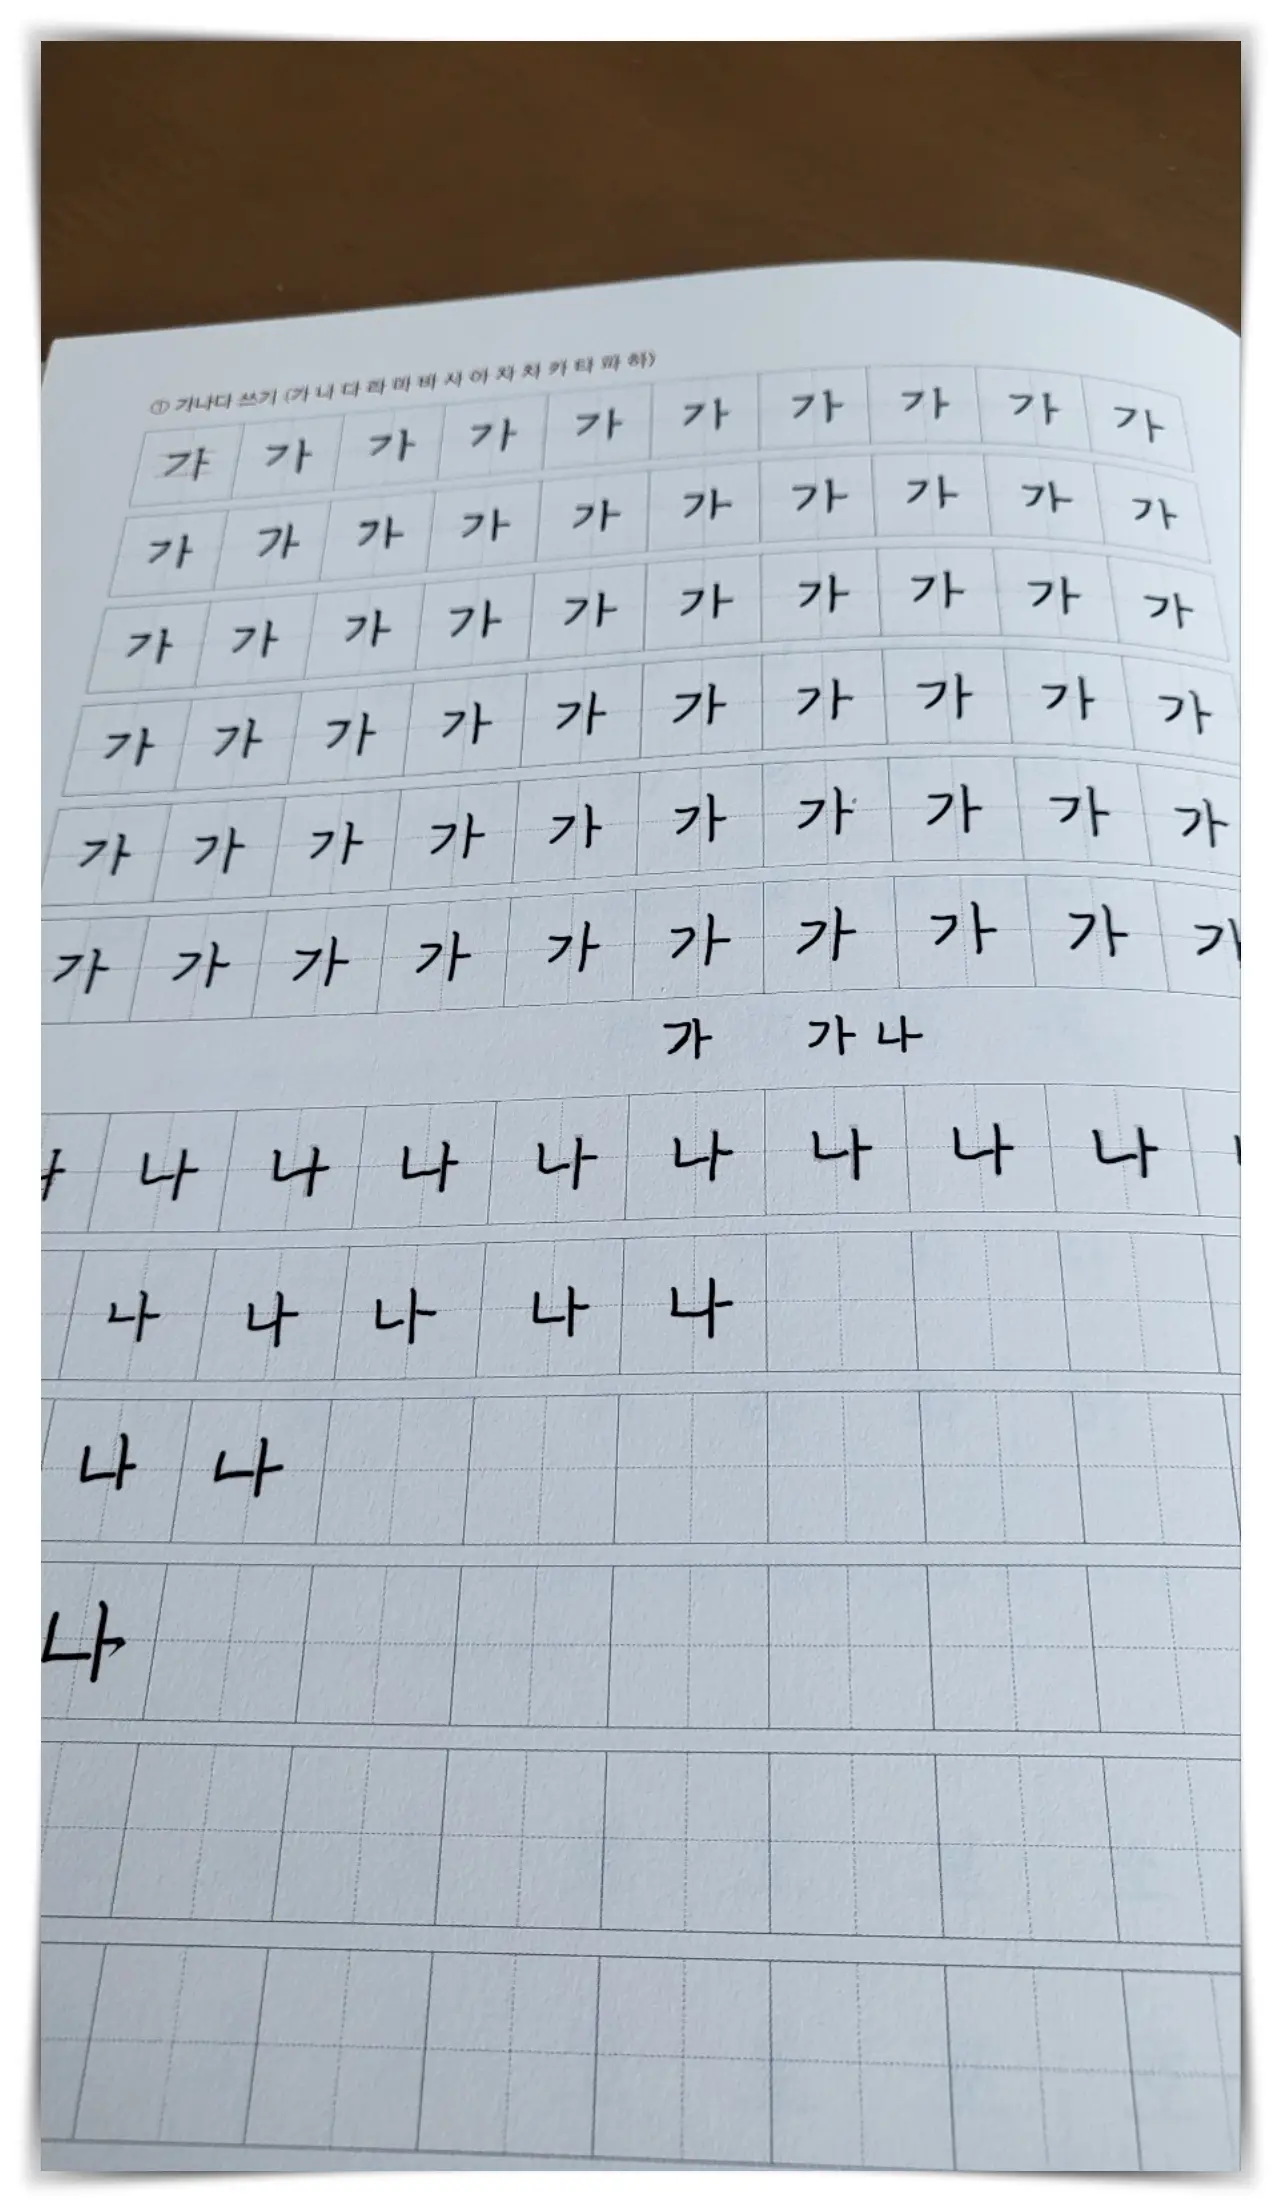 ① 가나다 쓰기 (가 나 다 라 마 바 사 아 자 차 카 타 파 하)
가 가 가 가 가 가 가 가 가 가
가 가 가 가 가 가 가 가 가 가
가 가 가 가 가 가 가 가 가 가
가 가 가 가 가 가 가 가 가 가
가 가 가 가 가 가 가 가 가 가
가 가 가 가 가 가 가 가 가 가
가 가 나
나 나 나 나 나 나 나 나
나 나 나 나 나
나 나
나